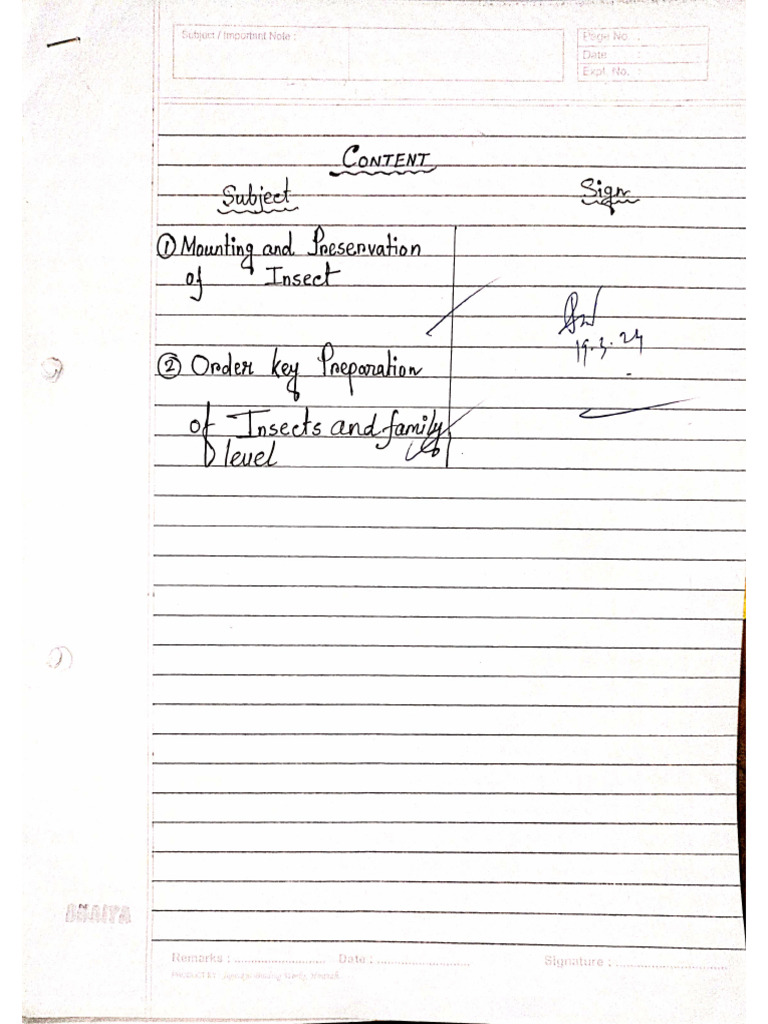 Subject / Important Note :
Page No. :
Date :
Expt. No. :
CONTENT
Subject Sign
① Mounting and Preservation
of Insect
19.3.24
② Order key Preparation
of Insects and family
level
Remarks : Date : Signature :